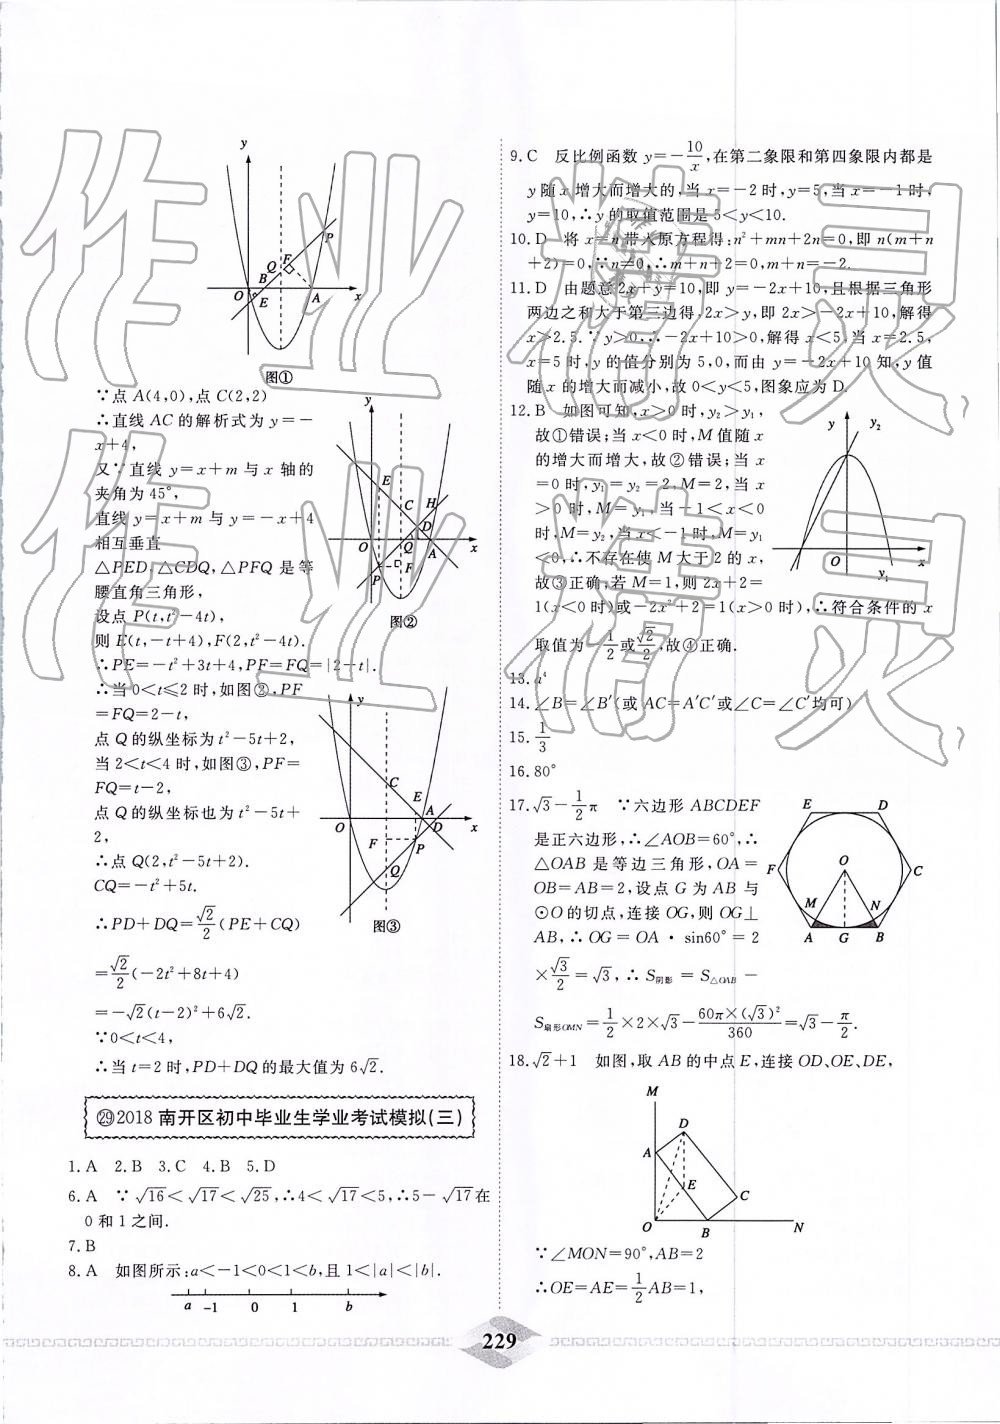 y
P
Q F
B
O E A x
图①
∵点 A(4,0),点 C(2,2)
∴直线 AC 的解析式为 y=-
x+4,
又∵直线 y=x+m 与 x 轴的
夹角为 45°,
直线 y=x+m 与 y=-x+4
相互垂直
△PED,△CDQ,△PFQ 是等
腰直角三角形,
设点 P(t,t²-4t),
则 E(t,-t+4),F(2,t²-4t).
∴PE=-t²+3t+4,PF=FQ=|2-t|.
∴当 0<t≤2 时,如图②,PF
=FQ=2-t,
点 Q 的纵坐标为 t²-5t+2,
当 2<t<4 时,如图③,PF=
FQ=t-2,
点 Q 的纵坐标也为 t²-5t+
2,
∴点 Q(2,t²-5t+2).
CQ=-t²+5t.
∴PD+DQ=√2/2(PE+CQ)
=√2/2(-2t²+8t+4)
=-√2(t-2)²+6√2.
∵0<t<4,
∴当 t=2 时,PD+DQ 的最大值为 6√2.
y
E
C H
D
O Q A x
P F
图②
y
C
E A
O D x
F P
Q
图③
㉙2018 南开区初中毕业生学业考试模拟(三)
1.A 2.B 3.C 4.B 5.D
6.A ∵√16<√17<√25,∴4<√17<5,∴5-√17在
0 和 1 之间.
7.B
8.A 如图所示:a<-1<0<1<b,且 1<|a|<|b|.
a -1 0 1 b
9.C 反比例函数 y=-10/x,在第二象限和第四象限内都是
y 随 x 增大而增大的,当 x=-2 时,y=5,当 x=-1 时,
y=10,∴y 的取值范围是 5<y<10.
10.D 将 x=n 带入原方程得:n²+mn+2n=0,即 n(m+n
+2)=0,∵n≠0,∴m+n+2=0,m+n=-2.
11.D 由题意 2x+y=10,即 y=-2x+10,且根据三角形
两边之和大于第三边得,2x>y,即 2x>-2x+10,解得
x>2.5.∵y>0,∴-2x+10>0,解得 x<5,当 x=2.5,
x=5 时,y 的值分别为 5,0,而由 y=-2x+10 知,y 值
随 x 的增大而减小,故 0<y<5,图象应为 D.
12.B 如图可知,x>0 时,y₂>y₁,
故①错误;当 x<0 时,M 值随 x
的增大而增大,故②错误;当 x
=0 时,y₁=y₂=2,M=2,当 x
>0 时,M=y₁,当-1<x<0
时,M=y₂,当 x<-1 时,M=y₁
<0,∴不存在使 M 大于 2 的 x,
故③正确,若 M=1,则 2x+2=
1(x<0 时)或-2x²+2=1(x>0 时),∴符合条件的 x
取值为-1/2或√2/2,故④正确.
y y₂
O x
y₁
13.a⁴
14.∠B=∠B′(或 AC=A′C′或∠C=∠C′均可)
15.1/3
16.80°
17.√3-1/2π ∵六边形 ABCDEF
是正六边形,∴∠AOB=60°,∴
△OAB 是等边三角形,OA=
OB=AB=2,设点 G 为 AB 与
⊙O 的切点,连接 OG,则 OG⊥
AB,∴OG=OA·sin60°=2
×√3/2=√3,∴S阴影=S△OAB-
S扇形OMN=1/2×2×√3-60π×(√3)²/360=√3-π/2.
E D
F O C
M N
A G B
18.√2+1 如图,取 AB 的中点 E,连接 OD、OE、DE,
M
D
A
E
C
O B N
∵∠MON=90°,AB=2
∴OE=AE=1/2AB=1,
229
作业精灵
作业精灵